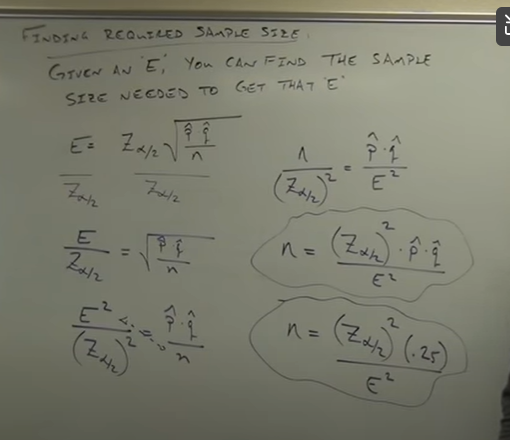 FINDING REQUIRED SAMPLE SIZE.
GIVEN AN 'E', YOU CAN FIND THE SAMPLE
SIZE NEEDED TO GET THAT 'E'
E = Z_{α/2} √(p̂·q̂ / n)
Z_{α/2}   Z_{α/2}
E / Z_{α/2} = √(p̂·q̂ / n)
E² / (Z_{α/2})² = p̂·q̂ / n
n / (Z_{α/2})² = p̂·q̂ / E²
n = (Z_{α/2})² · p̂·q̂ / E²
n = (Z_{α/2})² (.25) / E²